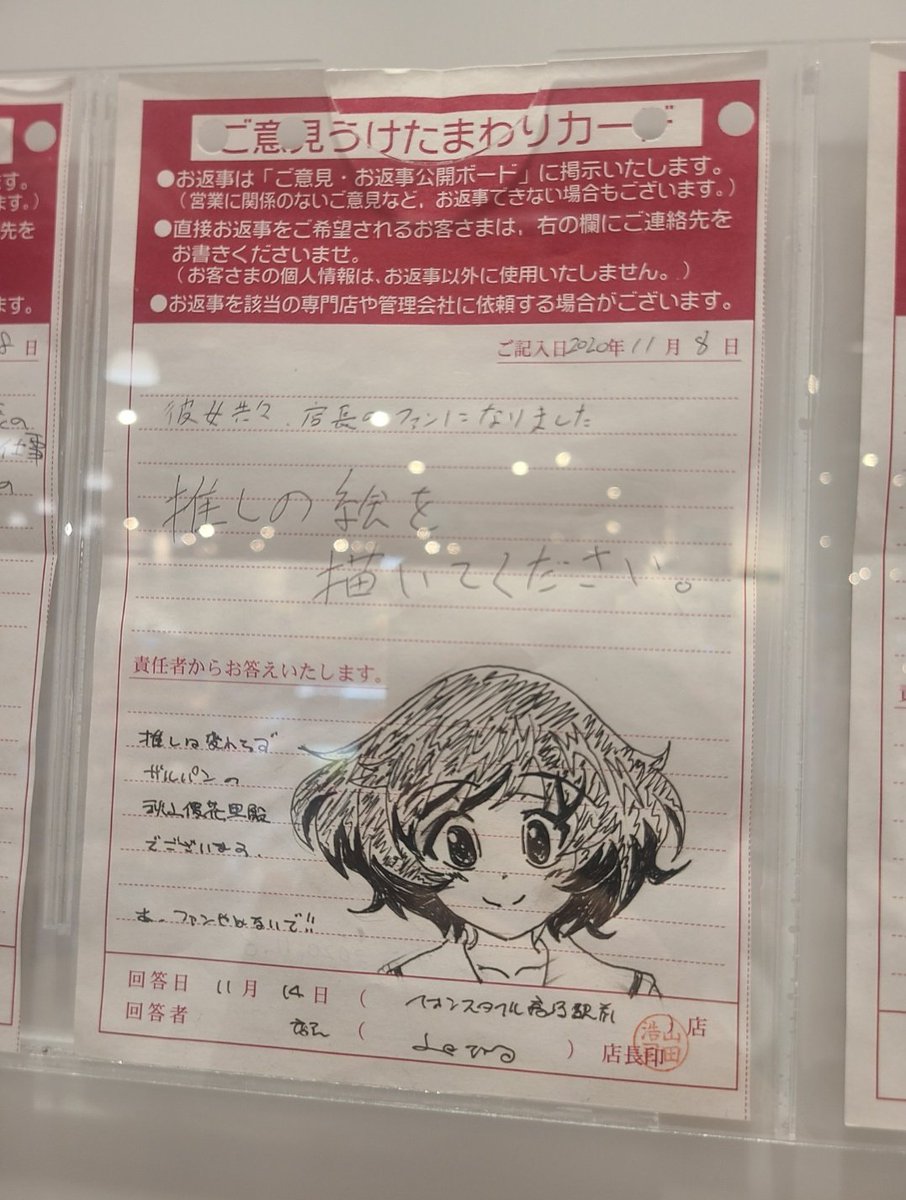 ご意見うけたまわりカード
●お返事は「ご意見・お返事公開ボード」に掲示いたします。
（営業に関係のないご意見など，お返事できない場合もございます。）
●直接お返事をご希望されるお客さまは，右の欄にご連絡先を
お書きくださいませ。
（お客さまの個人情報は、お返事以外に使用いたしません。）
●お返事を該当の専門店や管理会社に依頼する場合がございます。
ご記入日2020年11月8日
店長のファンになりました
推しの絵を
描いてください。
責任者からお答えいたします。
推しは変わらず
ガルパンの
秋山優花里殿
でございます。
あ、ファンやめないで!!
回答日 11月14日（イオンスタイル 駅前）店
回答者 店長（ ）店長印
山田
す。
ます。）
先を
ます。
8日